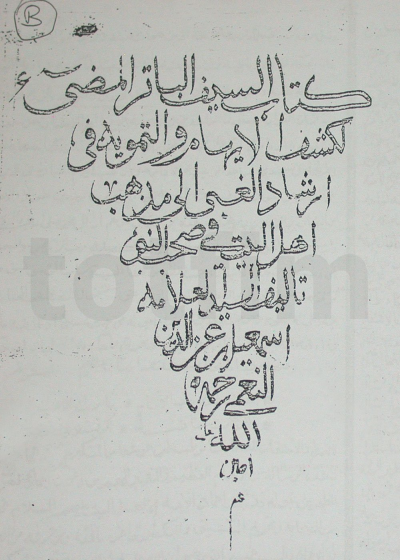 B
كتاب السيف الباتر المضيء
لكشف الايهام والتمويه في
ارشاد الغبي الى مذهب
اهل البيت في صحب النبي
تاليف السيد العلامه
اسمعيل بن عز الدين
النعمي رحمه
الله
امين